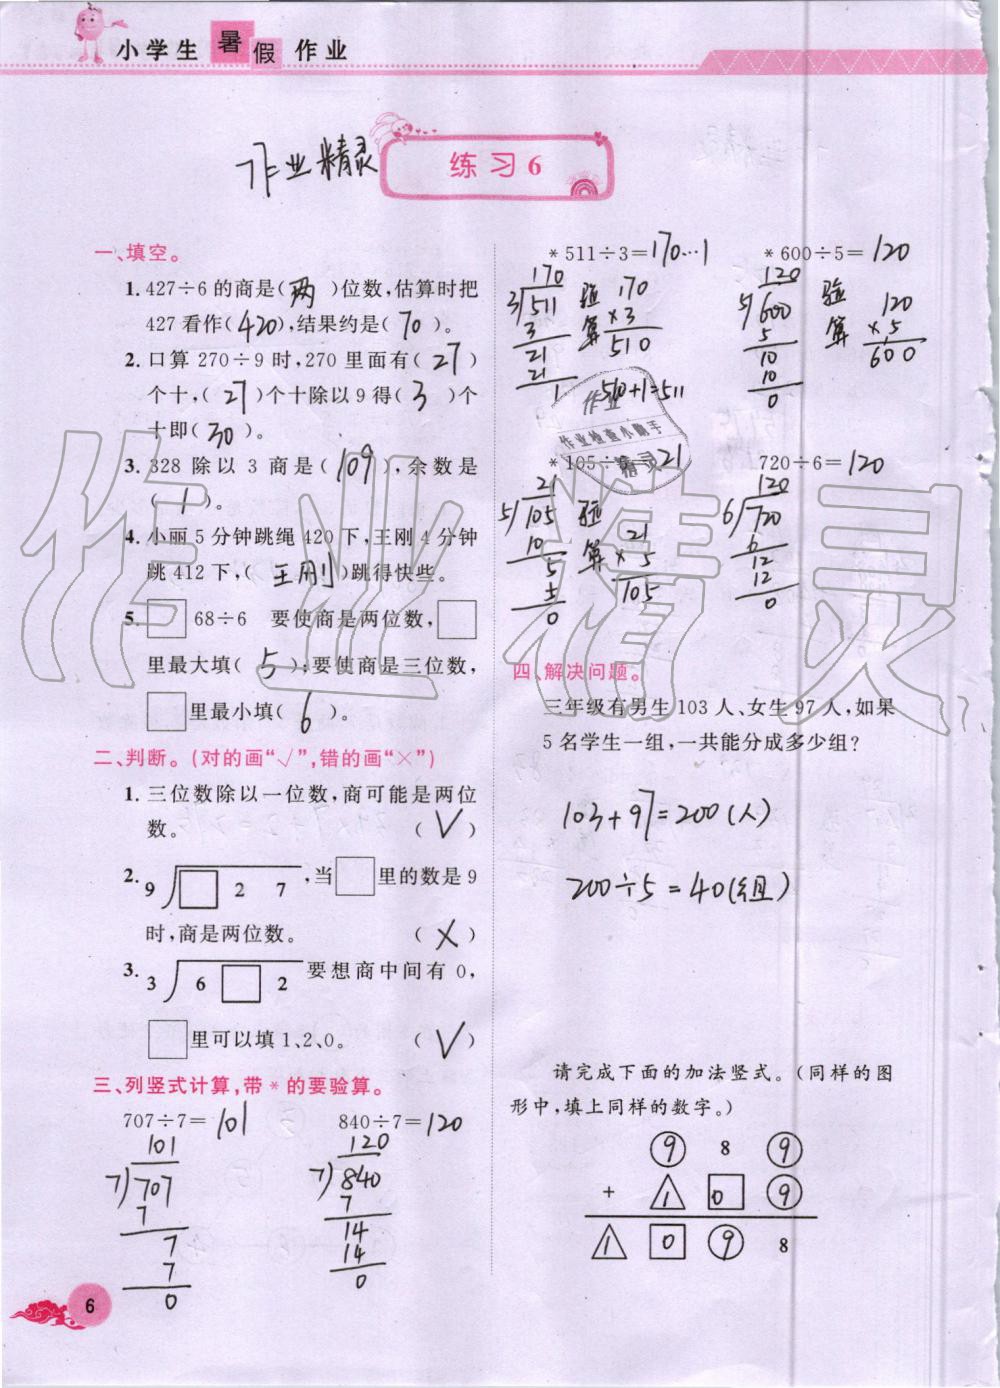 小学生暑假作业
作业精灵
练习6
一、填空。
1. 427÷6的商是(两)位数,估算时把
427看作(420),结果约是(70)。
2. 口算270÷9时,270里面有(27)
个十,(27)个十除以9得(3)个
十即(30)。
3. 328除以3商是(109),余数是
(1)。
4. 小丽5分钟跳绳420下,王刚4分钟
跳412下,(王刚)跳得快些。
5. □68÷6 要使商是两位数,□
里最大填(5);要使商是三位数,
□里最小填(6)。
二、判断。(对的画“√”,错的画“×”)
1. 三位数除以一位数,商可能是两位
数。 (√)
2. 9 □ 2 7,当□里的数是9
时,商是两位数。 (×)
3. 3 6 □ 2 要想商中间有0,
□里可以填1、2、0。 (√)
三、列竖式计算,带*的要验算。
707÷7=101 840÷7=120
101 120
7 707 7 840
7 7
7 14
7 14
0 0
*511÷3=170…1 *600÷5=120
170 验 170 120 验 120
3 511 算 ×3 5 600 算 ×5
3 510 5 600
21 10
21 10
1 510+1=511 0
作业
作业检查小助手
精灵
*105÷ 21 720÷6=120
21 验 21 120
5 105 算 ×5 6 720
10 105 6
5 12
5 12
0 0
四、解决问题。
三年级有男生103人、女生97人,如果
5名学生一组,一共能分成多少组?
103+97=200(人)
200÷5=40(组)
请完成下面的加法竖式。(同样的图
形中,填上同样的数字。)
9 8 9
+ 1 0 9
1 0 9 8
6
作业精灵